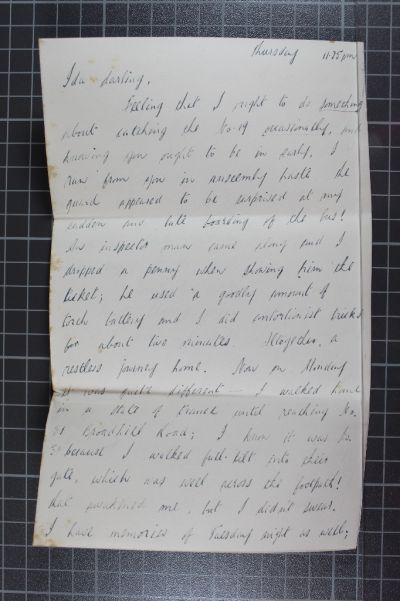 Thursday 11.25pm
Ida darling,
Feeling that I ought to do something
about catching the No. 19 occasionally, and
knowing you ought to be in early, I
ran from you in unseemly haste. The
guard appeared to be surprised at my
sudden and late boarding of the bus!
An inspector man came along and I
dropped a penny when showing him the
ticket; he used a goodly amount of
torch battery and I did contortionist tricks
for about two minutes. Altogether, a
restless journey home. Now on Monday
it was quite different — I walked home
in a state of trance until reaching No.
Broadhill Road; I know it was No.
because I walked full-tilt into their
gate, which was well across the footpath!
that awakened me, but I didn't swear.
I have memories of Tuesday night as well;